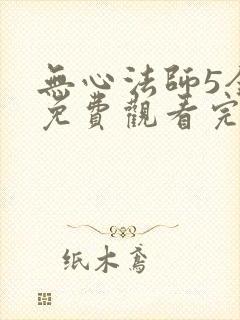 無心法師5全
免費觀看完
纸木鸢